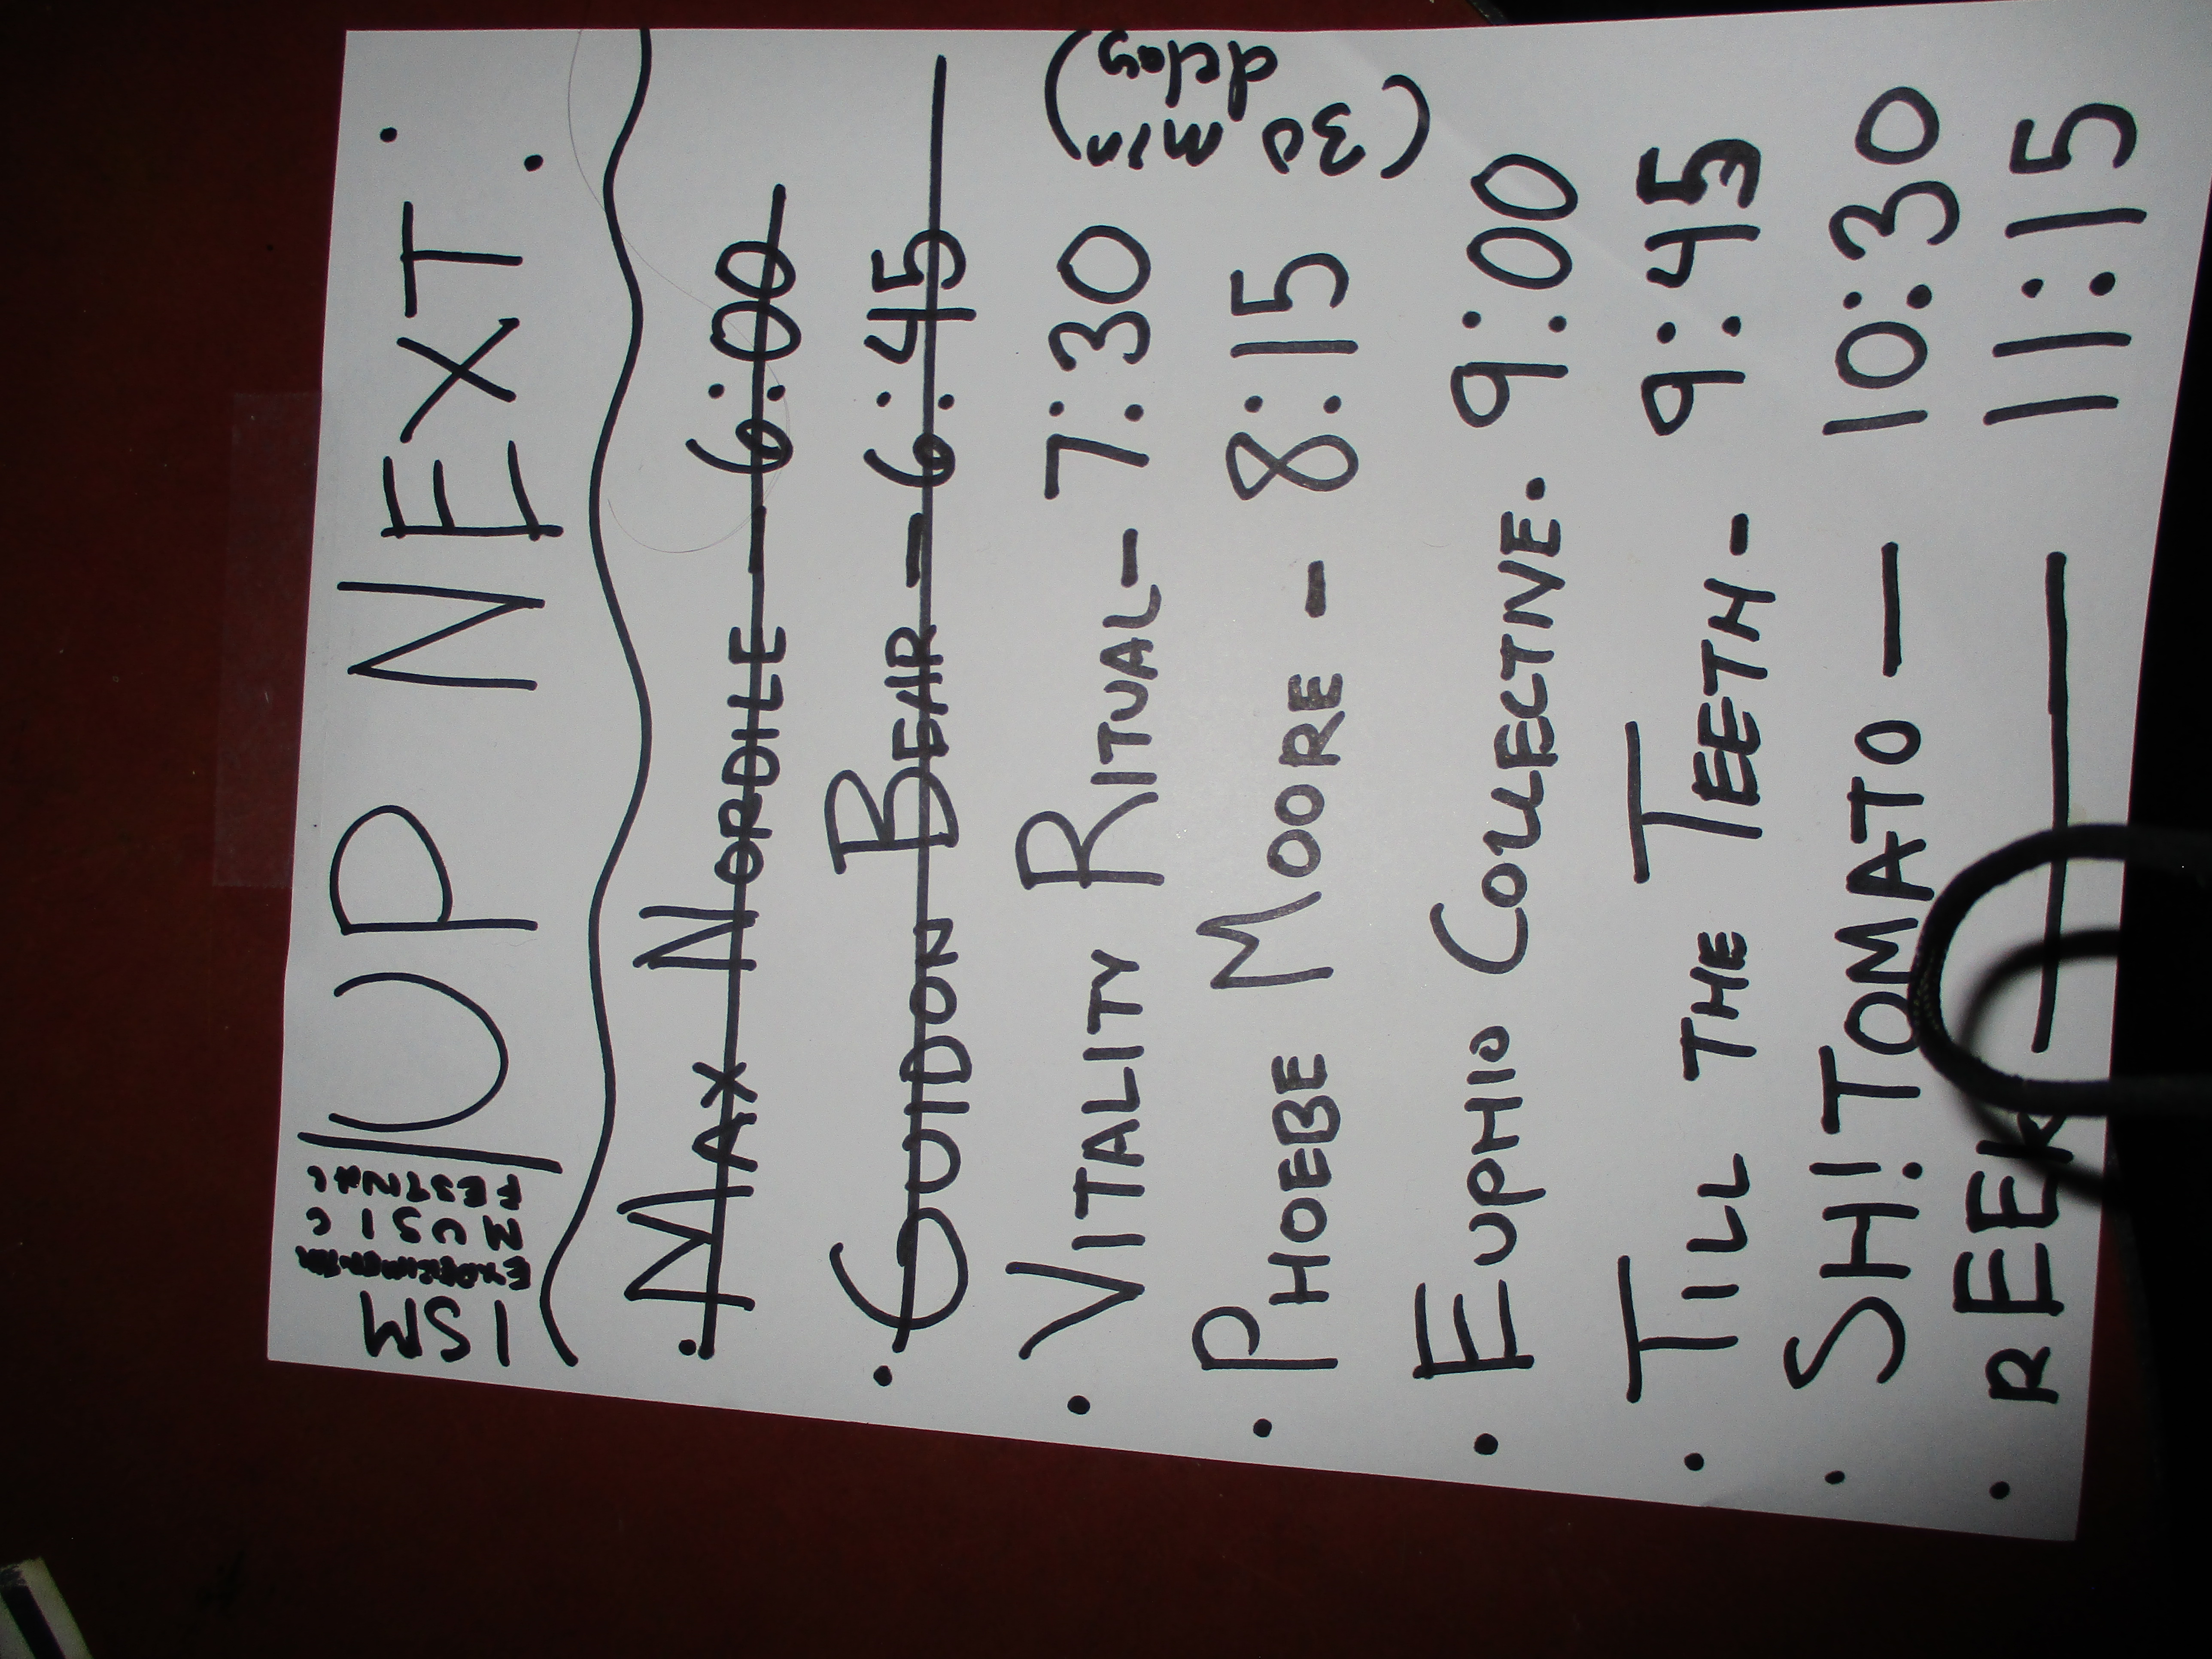 ISM
EXPERIMENTAL
MUSIC
FESTIVAL
UP NEXT:
• MAX NORDILE — 6:00
• GUIDON BEAR — 6:45
• VITALITY RITUAL- 7:30
• PHOEBE MOORE - 8:15
(30 min delay)
• EUPHIO COLLECTIVE. 9:00
• TILL THE TEETH - 9:45
• SHITOMATO — 10:30
• REEK — 11:15